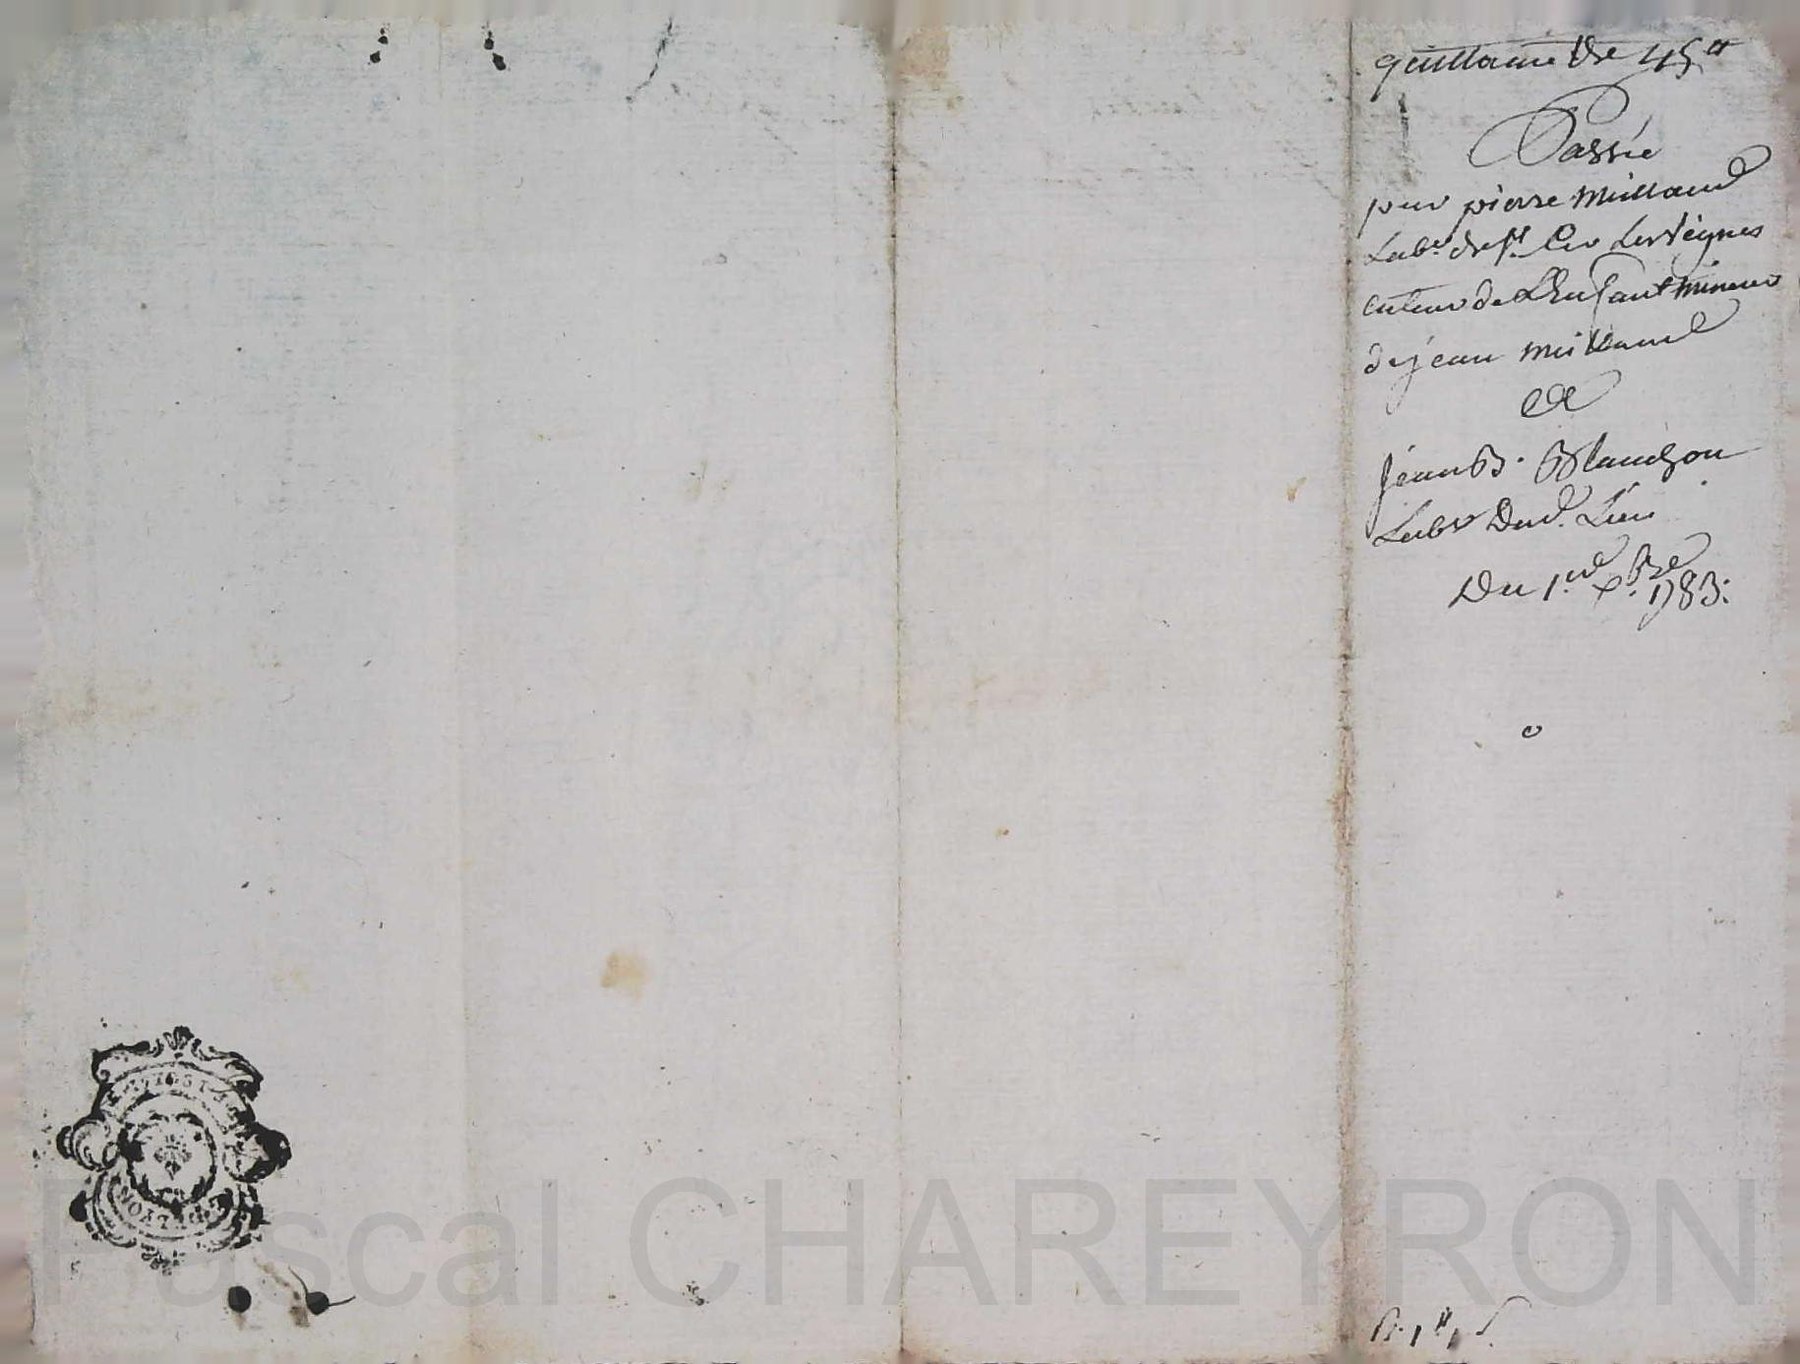 quittance de 45#
Passée
par pierre Millaud
Lab.r de s.t
tuteur de L'Enfant mineur
de jean millaud
et
jean B. Blanchon
Labr Dud. Lieu
Du 1.er xbre 1783.
DE LYON
Pascal CHAREYRON